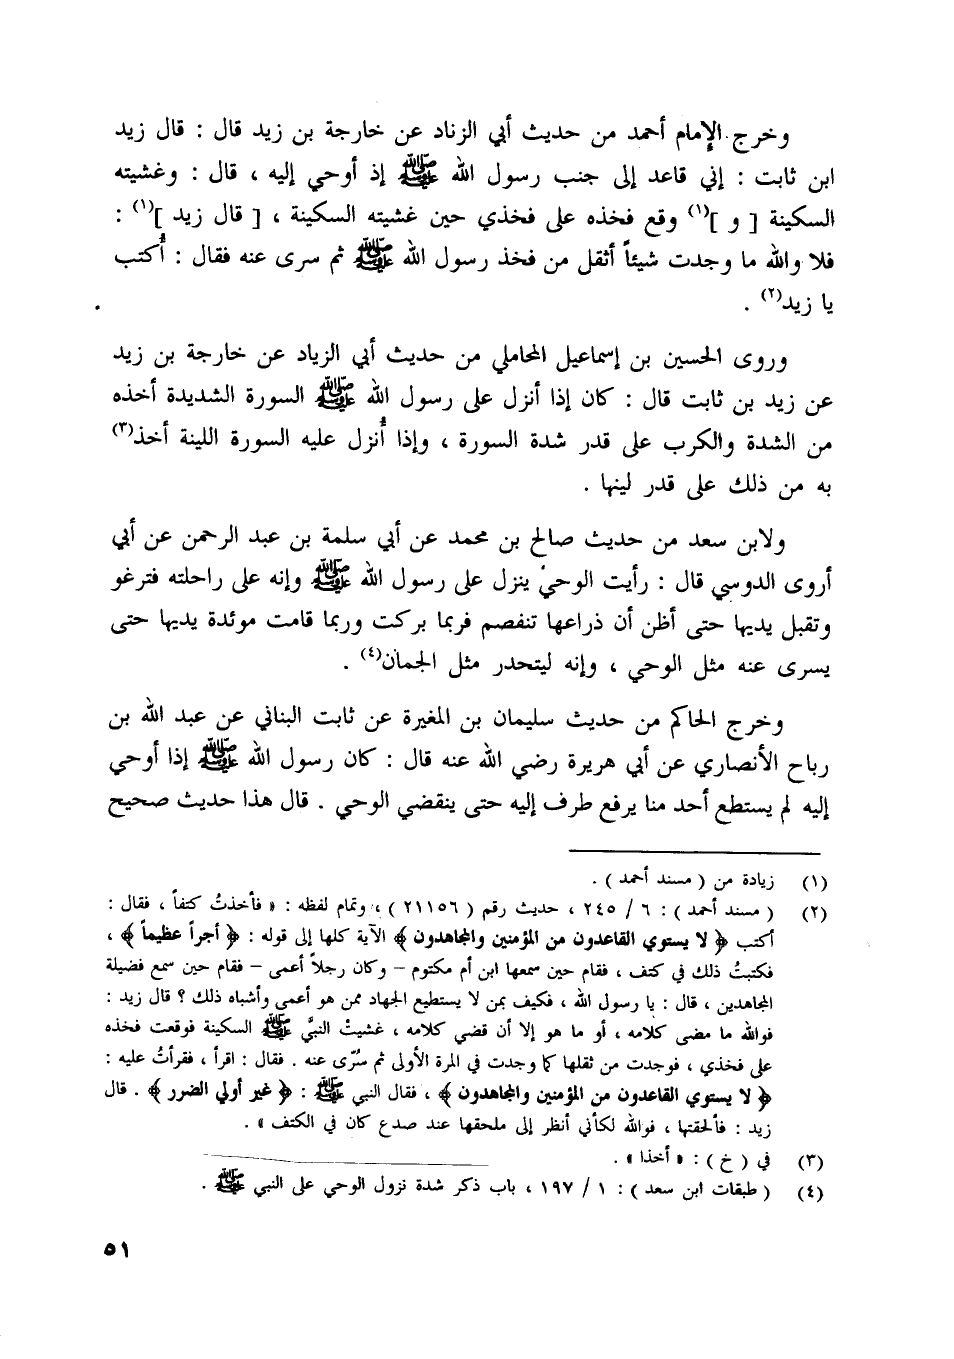 وخرج الإمام أحمد من حديث أبي الزناد عن خارجة بن زيد قال : قال زيد
ابن ثابت : إني قاعد إلى جنب رسول الله ﷺ إذ أوحي إليه ، قال : وغشيته
السكينة [ و ](١) وقع فخذه على فخذي حين غشيته السكينة ، [ قال زيد ](١) :
فلا والله ما وجدت شيئاً أثقل من فخذ رسول الله ﷺ ثم سرى عنه فقال : أُكتب
يا زيد(٢) .
وروى الحسين بن إسماعيل المحاملي من حديث أبي الزياد عن خارجة بن زيد
عن زيد بن ثابت قال : كان إذا أنزل على رسول الله ﷺ السورة الشديدة أخذه
من الشدة والكرب على قدر شدة السورة ، وإذا أُنزل عليه السورة اللينة أخذ(٣)
به من ذلك على قدر لينها .
ولابن سعد من حديث صالح بن محمد عن أبي سلمة بن عبد الرحمن عن أبي
أروى الدوسي قال : رأيت الوحيَ ينزل على رسول الله ﷺ وإنه على راحلته فترغو
وتقبل يديها حتى أظن أن ذراعها تنفصم فربما بركت وربما قامت موئدة يديها حتى
يسرى عنه مثل الوحي ، وإنه ليتحدر مثل الجمان(٤) .
وخرج الحاكم من حديث سليمان بن المغيرة عن ثابت البناني عن عبد الله بن
رباح الأنصاري عن أبي هريرة رضي الله عنه قال : كان رسول الله ﷺ إذا أوحي
إليه لم يستطع أحد منا يرفع طرف إليه حتى ينقضي الوحي . قال هذا حديث صحيح
(١) زيادة من ( مسند أحمد ) .
(٢) ( مسند أحمد ) : ٦ / ٢٤٥ ، حديث رقم ( ٢١١٥٦ ) ، وتمام لفظه : « فأخذتُ كتفاً ، فقال :
أكتب ﴿ لا يستوي القاعدون من المؤمنين والمجاهدون ﴾ الآية كلها إلى قوله : ﴿ أجراً عظيماً ﴾ ،
فكتبتُ ذلك في كتف ، فقام حين سمعها ابن أم مكتوم – وكان رجلاً أعمى – فقام حين سمع فضيلة
المجاهدين ، قال : يا رسول الله ، فكيف بمن لا يستطيع الجهاد ممن هو أعمى وأشباه ذلك ؟ قال زيد :
فوالله ما مضى كلامه ، أو ما هو إلا أن قضي كلامه ، غشيتْ النبيَّ ﷺ السكينة فوقعت فخذه
على فخذي ، فوجدت من ثقلها كما وجدت في المرة الأولى ثم سُرّى عنه . فقال : اقرأ ، فقرأتُ عليه :
﴿ لا يستوي القاعدون من المؤمنين والمجاهدون ﴾ ، فقال النبي ﷺ : ﴿ غير أولي الضرر ﴾ . قال
زيد : فألحقتها ، فوالله لكأني أنظر إلى ملحقها عند صدع كان في الكتف » .
(٣) في ( خ ) : « أخذا » .
(٤) ( طبقات ابن سعد ) : ١ / ١٩٧ ، باب ذكر شدة نزول الوحي على النبي ﷺ .
٥١